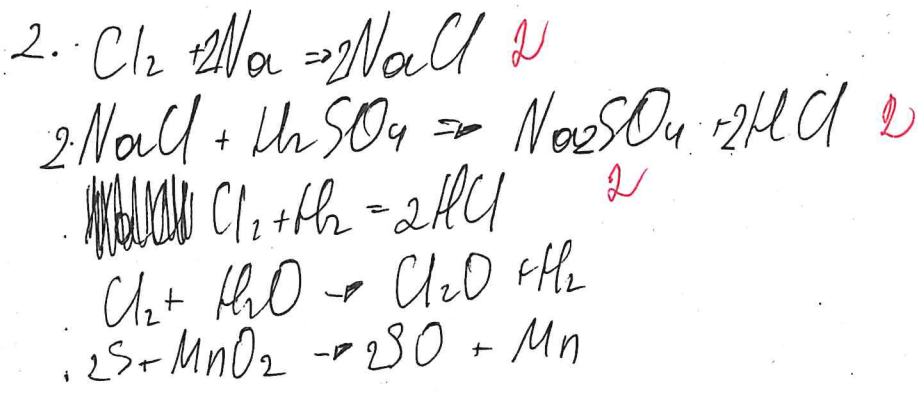 2. Cl2 + 2Na => 2NaCl 2
2NaCl + H2SO4 => Na2SO4 + 2HCl 2
Cl2 + H2 = 2HCl 2
Cl2 + H2O → Cl2O + H2
2S + MnO2 → 2SO + Mn